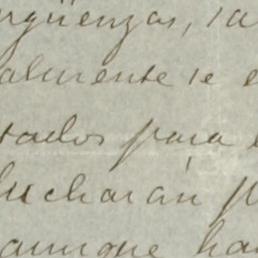 rgüenzas, la
almente se e
tados para e
lucharán p
aunque ha